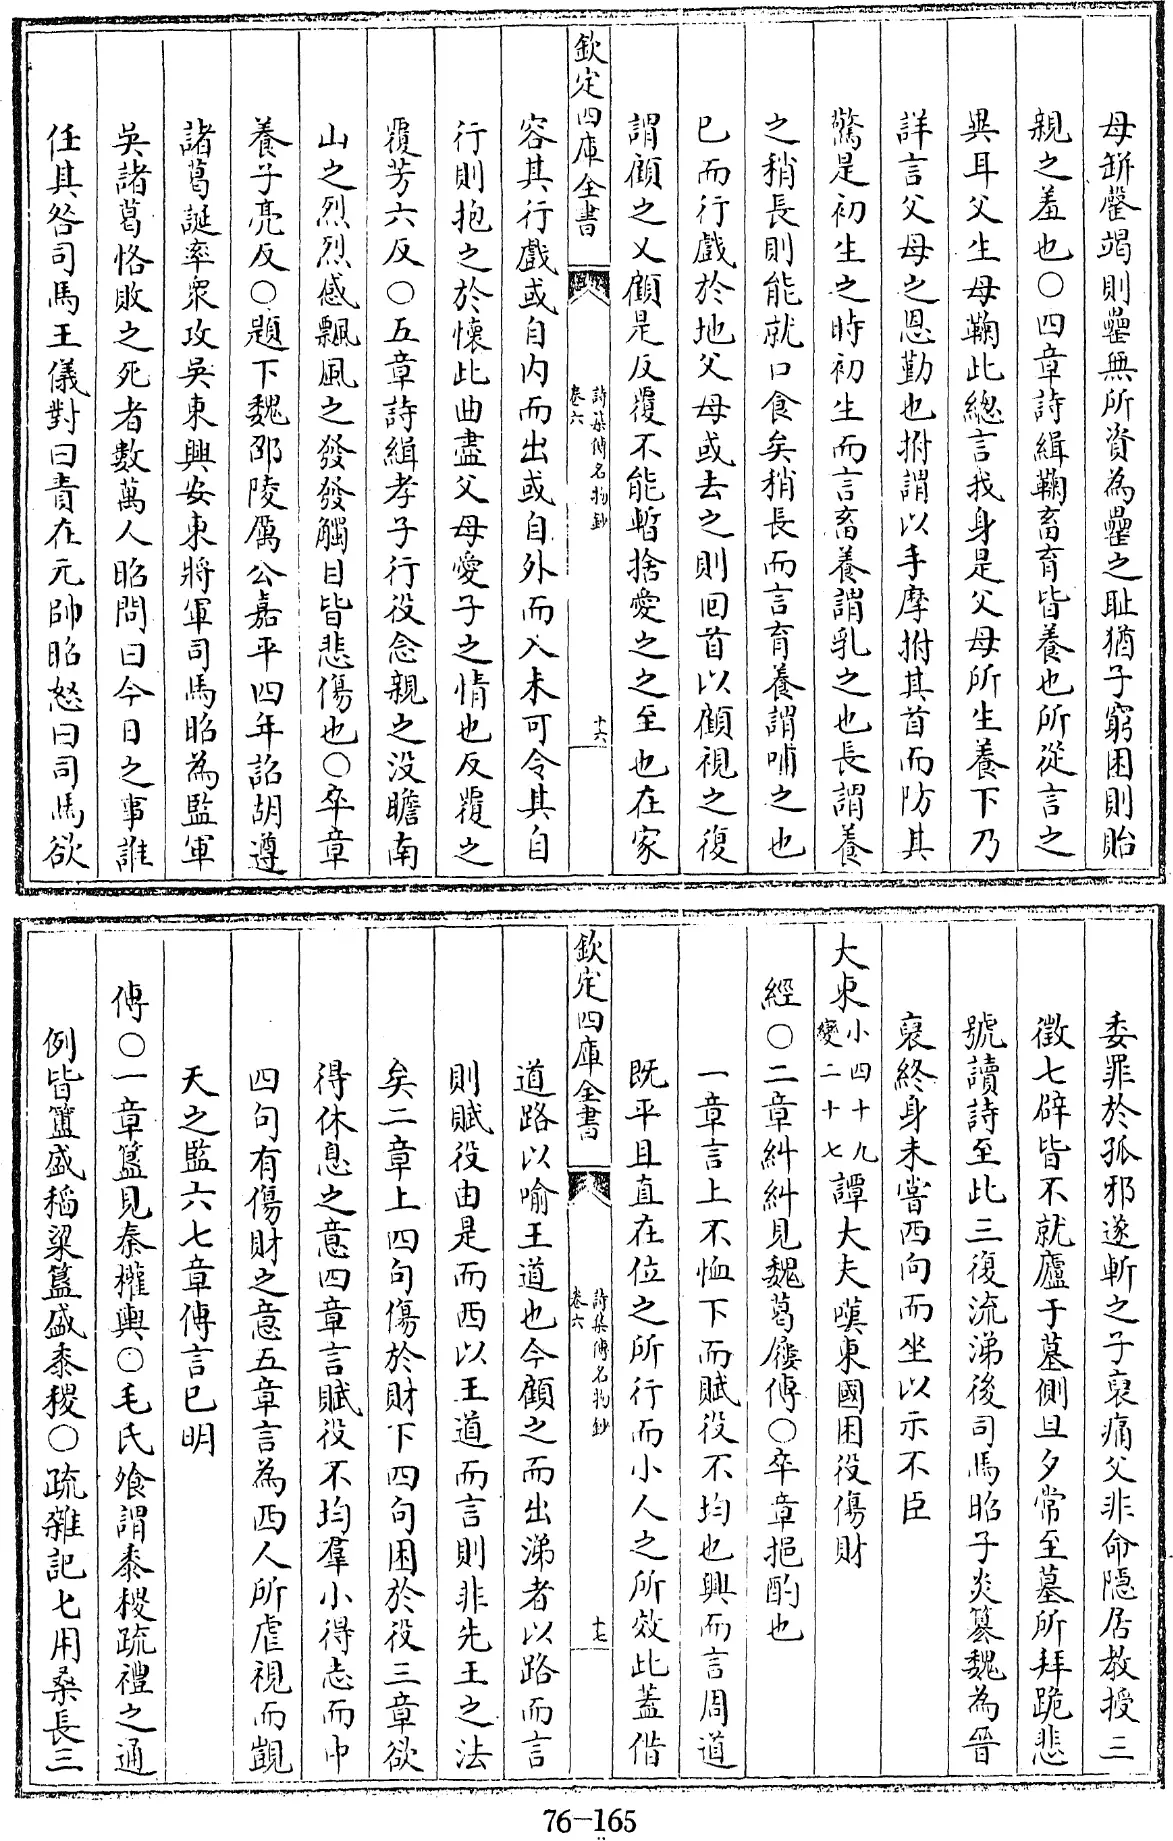 母缾罄竭則罍無所資為罍之耻猶子窮困則貽
親之羞也○四章詩緝鞠畜育皆養也所從言之
異耳父生母鞠此總言我身是父母所生養下乃
詳言父母之恩勤也拊謂以手摩拊其首而防其
驚是初生之時初生而言畜養謂乳之也長謂養
之稍長則能就口食矣稍長而言育養謂哺之也
已而行戲於地父母或去之則回首以顧視之復
謂顧之又顧是反覆不能暫捨愛之之至也在家
欽定四庫全書
詩集傳名物鈔
卷六
十六
容其行戲或自内而出或自外而入未可令其自
行則抱之於懷此曲盡父母愛子之情也反覆之
覆芳六反○五章詩緝孝子行役念親之没瞻南
山之烈烈感飄風之發發觸目皆悲傷也○卒章
養子亮反○題下魏邵陵厲公嘉平四年詔胡遵
諸葛誕率衆攻吳東興安東將軍司馬昭為監軍
吳諸葛恪敗之死者數萬人昭問曰今日之事誰
任其咎司馬王儀對曰責在元帥昭怒曰司馬欲
委罪於孤邪遂斬之子裒痛父非命隱居教授三
徵七辟皆不就廬于墓側旦夕常至墓所拜跪悲
號讀詩至此三復流涕後司馬昭子炎篡魏為晉
裒終身未嘗西向而坐以示不臣
大東小四十九變二十七譚大夫嘆東國困役傷財
經○二章糾糾見魏葛屨傳○卒章挹酌也
一章言上不恤下而賦役不均也興而言周道
既平且直在位之所行而小人之所效此蓋借
欽定四庫全書
詩集傳名物鈔
卷六
十七
道路以喻王道也今顧之而出涕者以路而言
則賦役由是而西以王道而言則非先王之法
矣二章上四句傷於財下四句困於役三章欲
得休息之意四章言賦役不均羣小得志而中
四句有傷財之意五章言為西人所虐視而覬
天之監六七章傳言已明
傳○一章簋見秦權輿○毛氏飧謂黍稷疏禮之通
例皆簠盛稻粱簋盛黍稷○疏雜記匕用桑長三
76-165